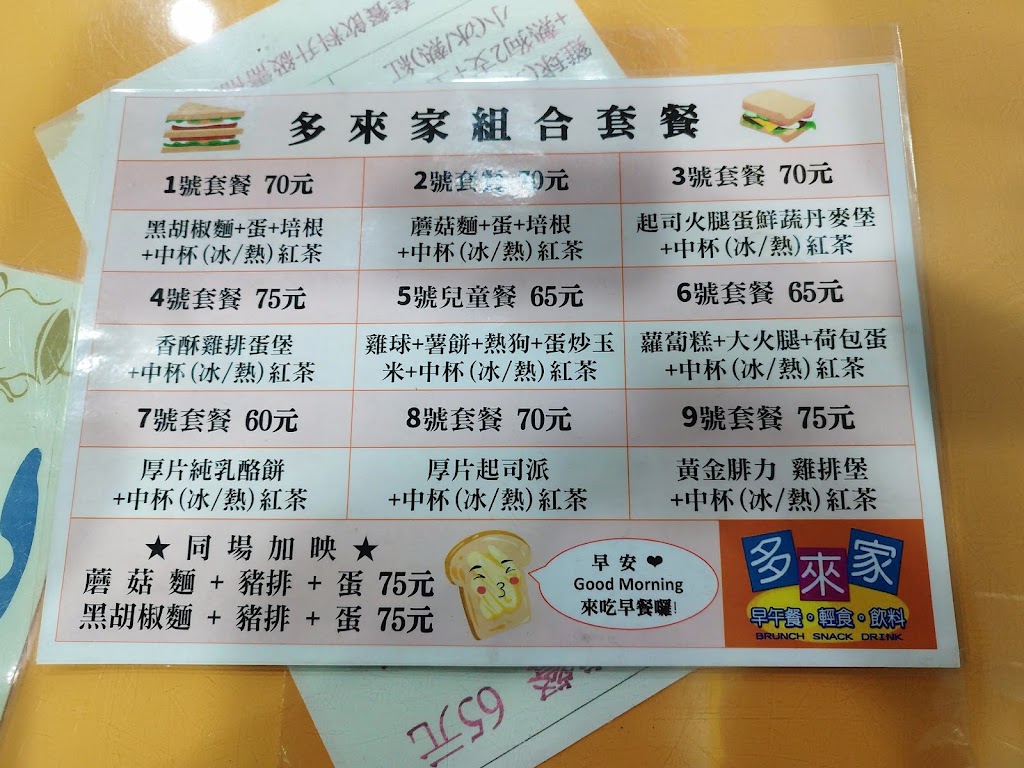 套餐飲料升級需
小(冰/熱)紅
+熱狗2支+
雞球(
多來家組合套餐
1號套餐 70元
2號套餐 70元
3號套餐 70元
黑胡椒麵+蛋+培根
+中杯(冰/熱)紅茶
蘑菇麵+蛋+培根
+中杯(冰/熱)紅茶
起司火腿蛋鮮蔬丹麥堡
+中杯(冰/熱)紅茶
4號套餐 75元
5號兒童餐 65元
6號套餐 65元
香酥雞排蛋堡
+中杯(冰/熱)紅茶
雞球+薯餅+熱狗+蛋炒玉
米+中杯(冰/熱)紅茶
蘿蔔糕+大火腿+荷包蛋
+中杯(冰/熱)紅茶
7號套餐 60元
8號套餐 70元
9號套餐 75元
厚片純乳酪餅
+中杯(冰/熱)紅茶
厚片起司派
+中杯(冰/熱)紅茶
黃金腓力 雞排堡
+中杯(冰/熱)紅茶
★同場加映★
蘑菇麵 + 豬排 + 蛋 75元
黑胡椒麵 + 豬排 + 蛋 75元
早安❤
Good Morning
來吃早餐囉!
多來家
早午餐·輕食·飲料
BRUNCH SNACK DRINK
65元